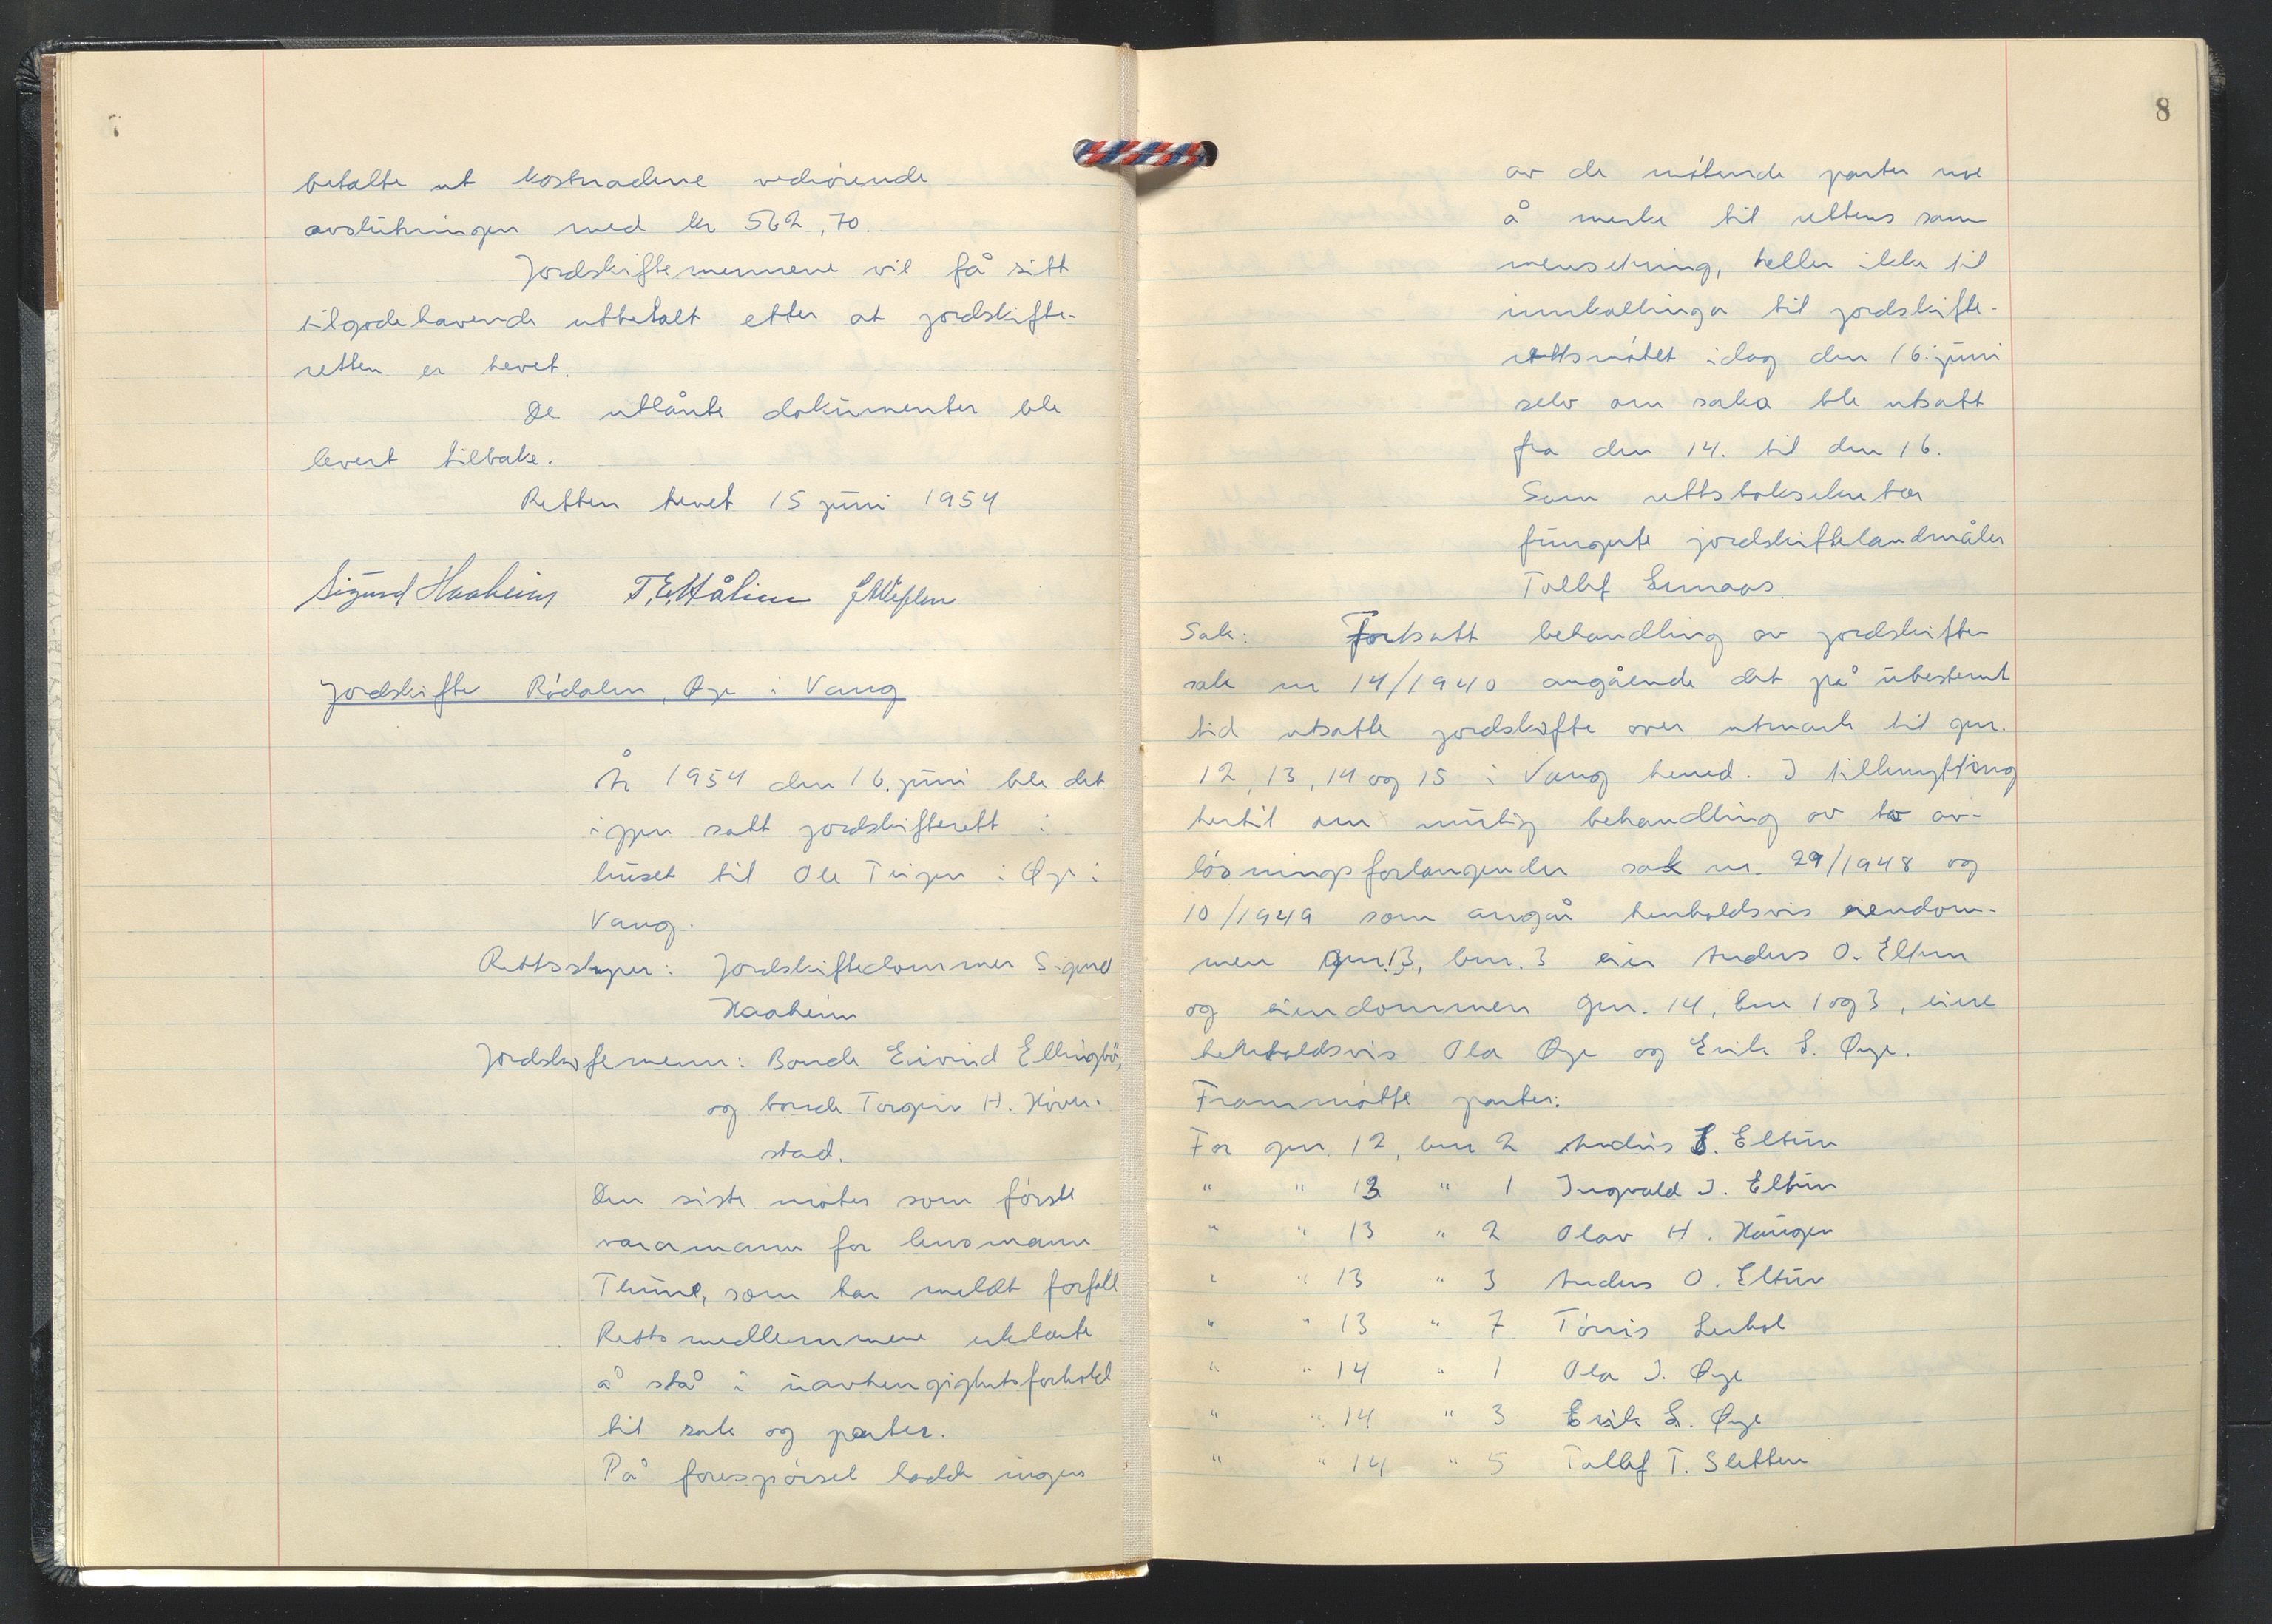 betalte ut kostnadene vedrörende
avslutningen med kr 562,70.
Jordskiftemennene vil få sitt
tilgodehavende utbetalt etter at jordskifte-
retten er hevet.
De utlånte dokumenter ble
levert tilbake.
Retten hevet 15 juni 1954
Sigurd Haaheim T. E. Hålien
Jordskifte Rödalen, Øye i Vang
År 1954 den 16. juni ble det
igjen satt jordskifterett i
huset til Ole Teigen i Øye i
Vang.
Rettsstyrer: Jordskiftedommer Sigurd
Haaheim
Jordskifemenn: Bonde Eivind Ellingbö,
og bonde Torgeir H. Höver-
stad.
Den siste möter som förste
varamann for lensmann
Thune, som har meldt forfall
Rettsmedlemmene erklærte
å stå i uavhengighetsforhold
til sak og parter.
På forespörsel hadde ingen
8
av de mötende parter noe
å merke til rettens sam-
mensetning, heller ikke til
innkallinga til jordskifte-
rettsmötet idag den 16. juni
selv om saka ble utsatt
fra den 14. til den 16.
Som rettsboksekretær
fungerte jordskiftelandmåler
Tollef Lunaas.
Sak: Fortsatt behandling av jordskifte-
sak nr 14/1940 angående det på ubestemt
tid utsatte jordskifte over utmark til gnr.
12, 13, 14 og 15 i Vang herred. I tilknytting
hertil om mulig behandling av to av-
lösningsforlangender sak nr. 29/1948 og
10/1949 som angår henholdsvis eiendom-
men gnr. 13, bnr. 3 eier Anders O. Eltun
og eiendommen gnr. 14, bnr 1 og 3, eiere
henholdsvis Ola Øye og Erik L. Øye.
Frammötte parter:
For gnr. 12, bnr 2 Andris J. Eltun
" " 13 " 1 Ingvald I. Eltun
" " 13 " 2 Olav H. Haugen
" " 13 " 3 Anders O. Eltun
" " 13 " 7 Törris Lerhol
" " 14 " 1 Ola I. Øye
" " 14 " 3 Erik L. Øye
" " 14 " 5 Tollef T. Sletten